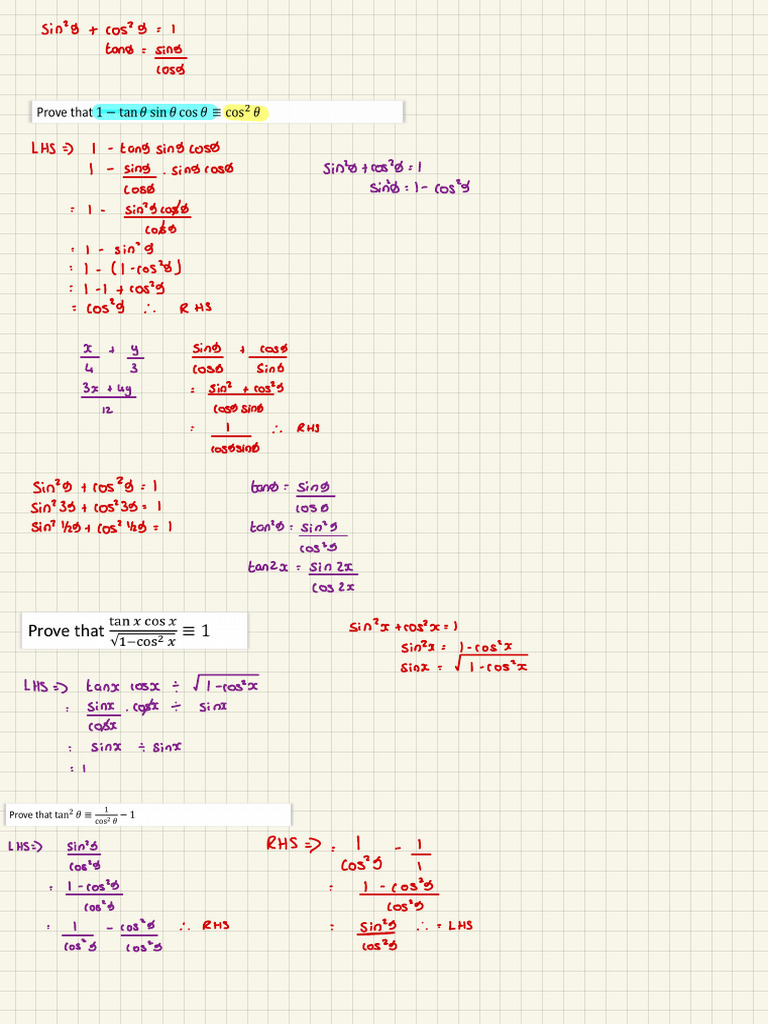 sin²θ + cos²θ = 1
tanθ = sinθ/cosθ
Prove that 1 − tan θ sin θ cos θ ≡ cos² θ
LHS => 1 - tanθ sinθ cosθ
1 - sinθ/cosθ . sinθ cosθ
= 1 - sin²θ cosθ/cosθ
= 1 - sin²θ
= 1 - (1 - cos²θ)
= 1 - 1 + cos²θ
= cos²θ ∴ RHS
sin²θ + cos²θ = 1
sin²θ = 1 - cos²θ
x/4 + y/3
3x + 4y/12
sinθ/cosθ + cosθ/sinθ
= sin² + cos²θ/cosθ sinθ
= 1/cosθsinθ ∴ RHS
sin²θ + cos²θ = 1
sin²3θ + cos²3θ = 1
sin² ½θ + cos² ½θ = 1
tanθ = sinθ/cosθ
tan²θ = sin²θ/cos²θ
tan2x = sin 2x/cos 2x
Prove that tan x cos x/√1−cos² x ≡ 1
sin²x + cos²x = 1
sin²x = 1 - cos²x
sinx = √1 - cos²x
LHS => tanx cosx ÷ √1 - cos²x
= sinx/cosx . cosx ÷ sinx
= sinx ÷ sinx
= 1
Prove that tan² θ ≡ 1/cos² θ − 1
LHS => sin²θ/cos²θ
= 1 - cos²θ/cos²θ
= 1/cos²θ - cos²θ/cos²θ ∴ RHS
RHS => = 1/cos²θ - 1/1
= 1 - cos²θ/cos²θ
= sin²θ/cos²θ ∴ = LHS